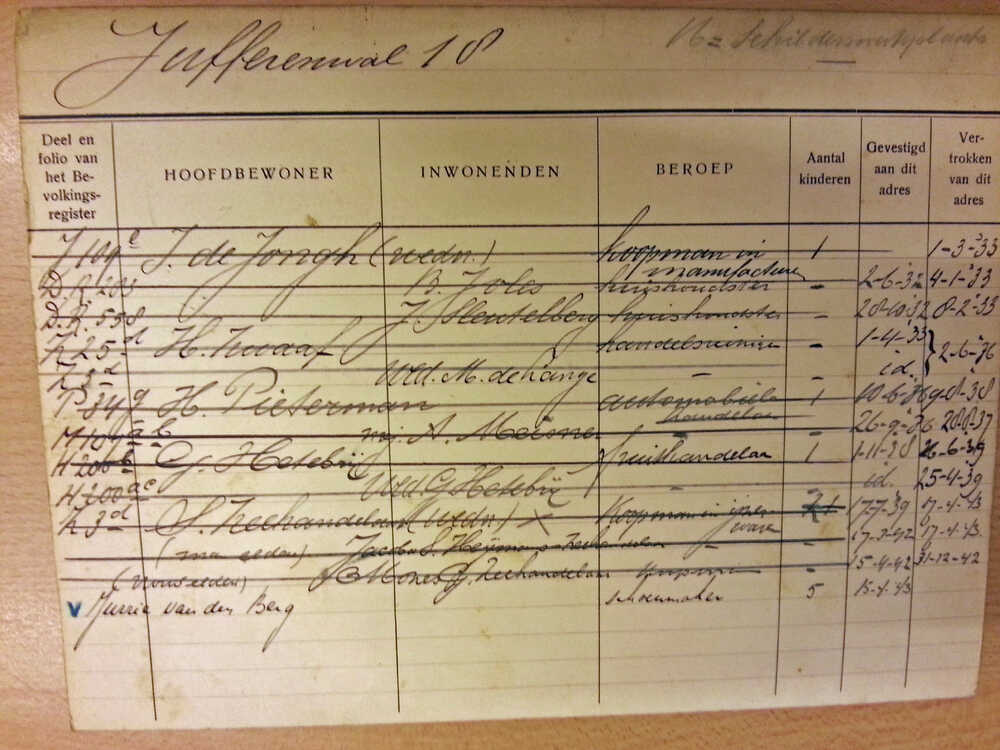 Jufferenwal 18
16 = Schilderswerkplaats
Deel en folio van het Bevolkingsregister HOOFDBEWONER INWONENDEN BEROEP Aantal kinderen Gevestigd aan dit adres Vertrokken van dit adres
J 109 e J. de Jongh (wedn.) koopman in manufacturen 1 1-3-33
D.R. 203 B. Joles huishoudster - 2-6-32 4-1-33
D.R. 558 J. Sleutelberg huishoudster - 28-10-32 8-2-33
K 25 d H. Kwaaf - 1-4-33 2-6-36
K 3 d Wed. M. de Lange - - id.
P 34 g H. Pieterman automobielhandelaar 1 10-6-36 9-8-38
M 104 a b mej. A. Meisner - 26-9-36 20-8-37
H 200 b G. Hesebrij fruithandelaar 1 1-11-38 26-6-39
H 200 a c Wed. G. Hesebrij - - id. 25-4-39
K 3 d S. Leehandelaar (wedn.) X koopman in 17-7-39 17-4-43
Jacob S. - - 17-3-42 17-4-43
Mones J. Leehandelaar - 15-4-42 31-12-42
V van den Berg schoenmaker 5 15-4-43